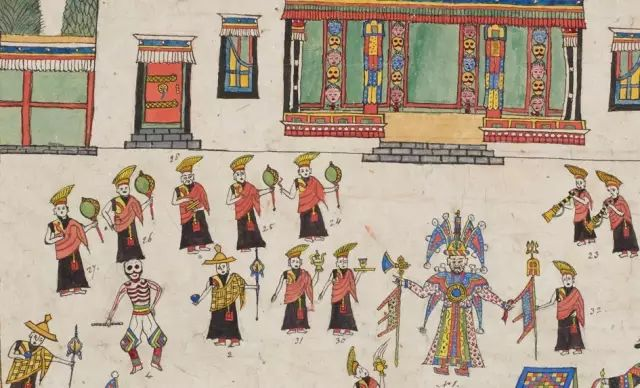 28
26
25
24
27
23
2
31
30
4
32